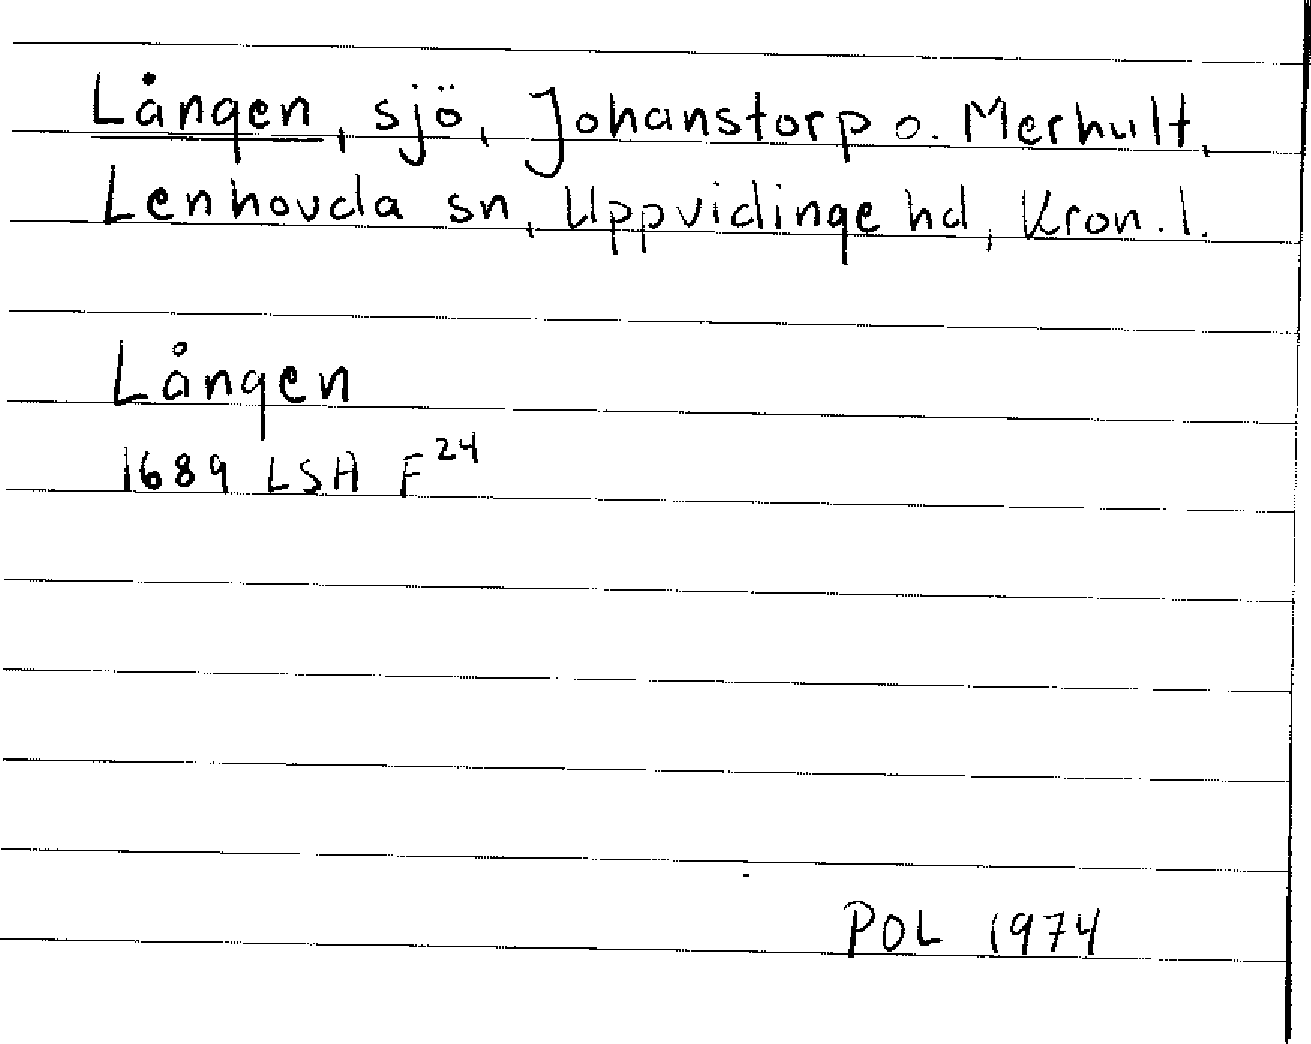 Lången, sjö, Johanstorp o. Merhult,
Lenhovda sn, Uppvidinge hd, Kron. l.
Lången
1689 LSA F²⁴
POL 1974